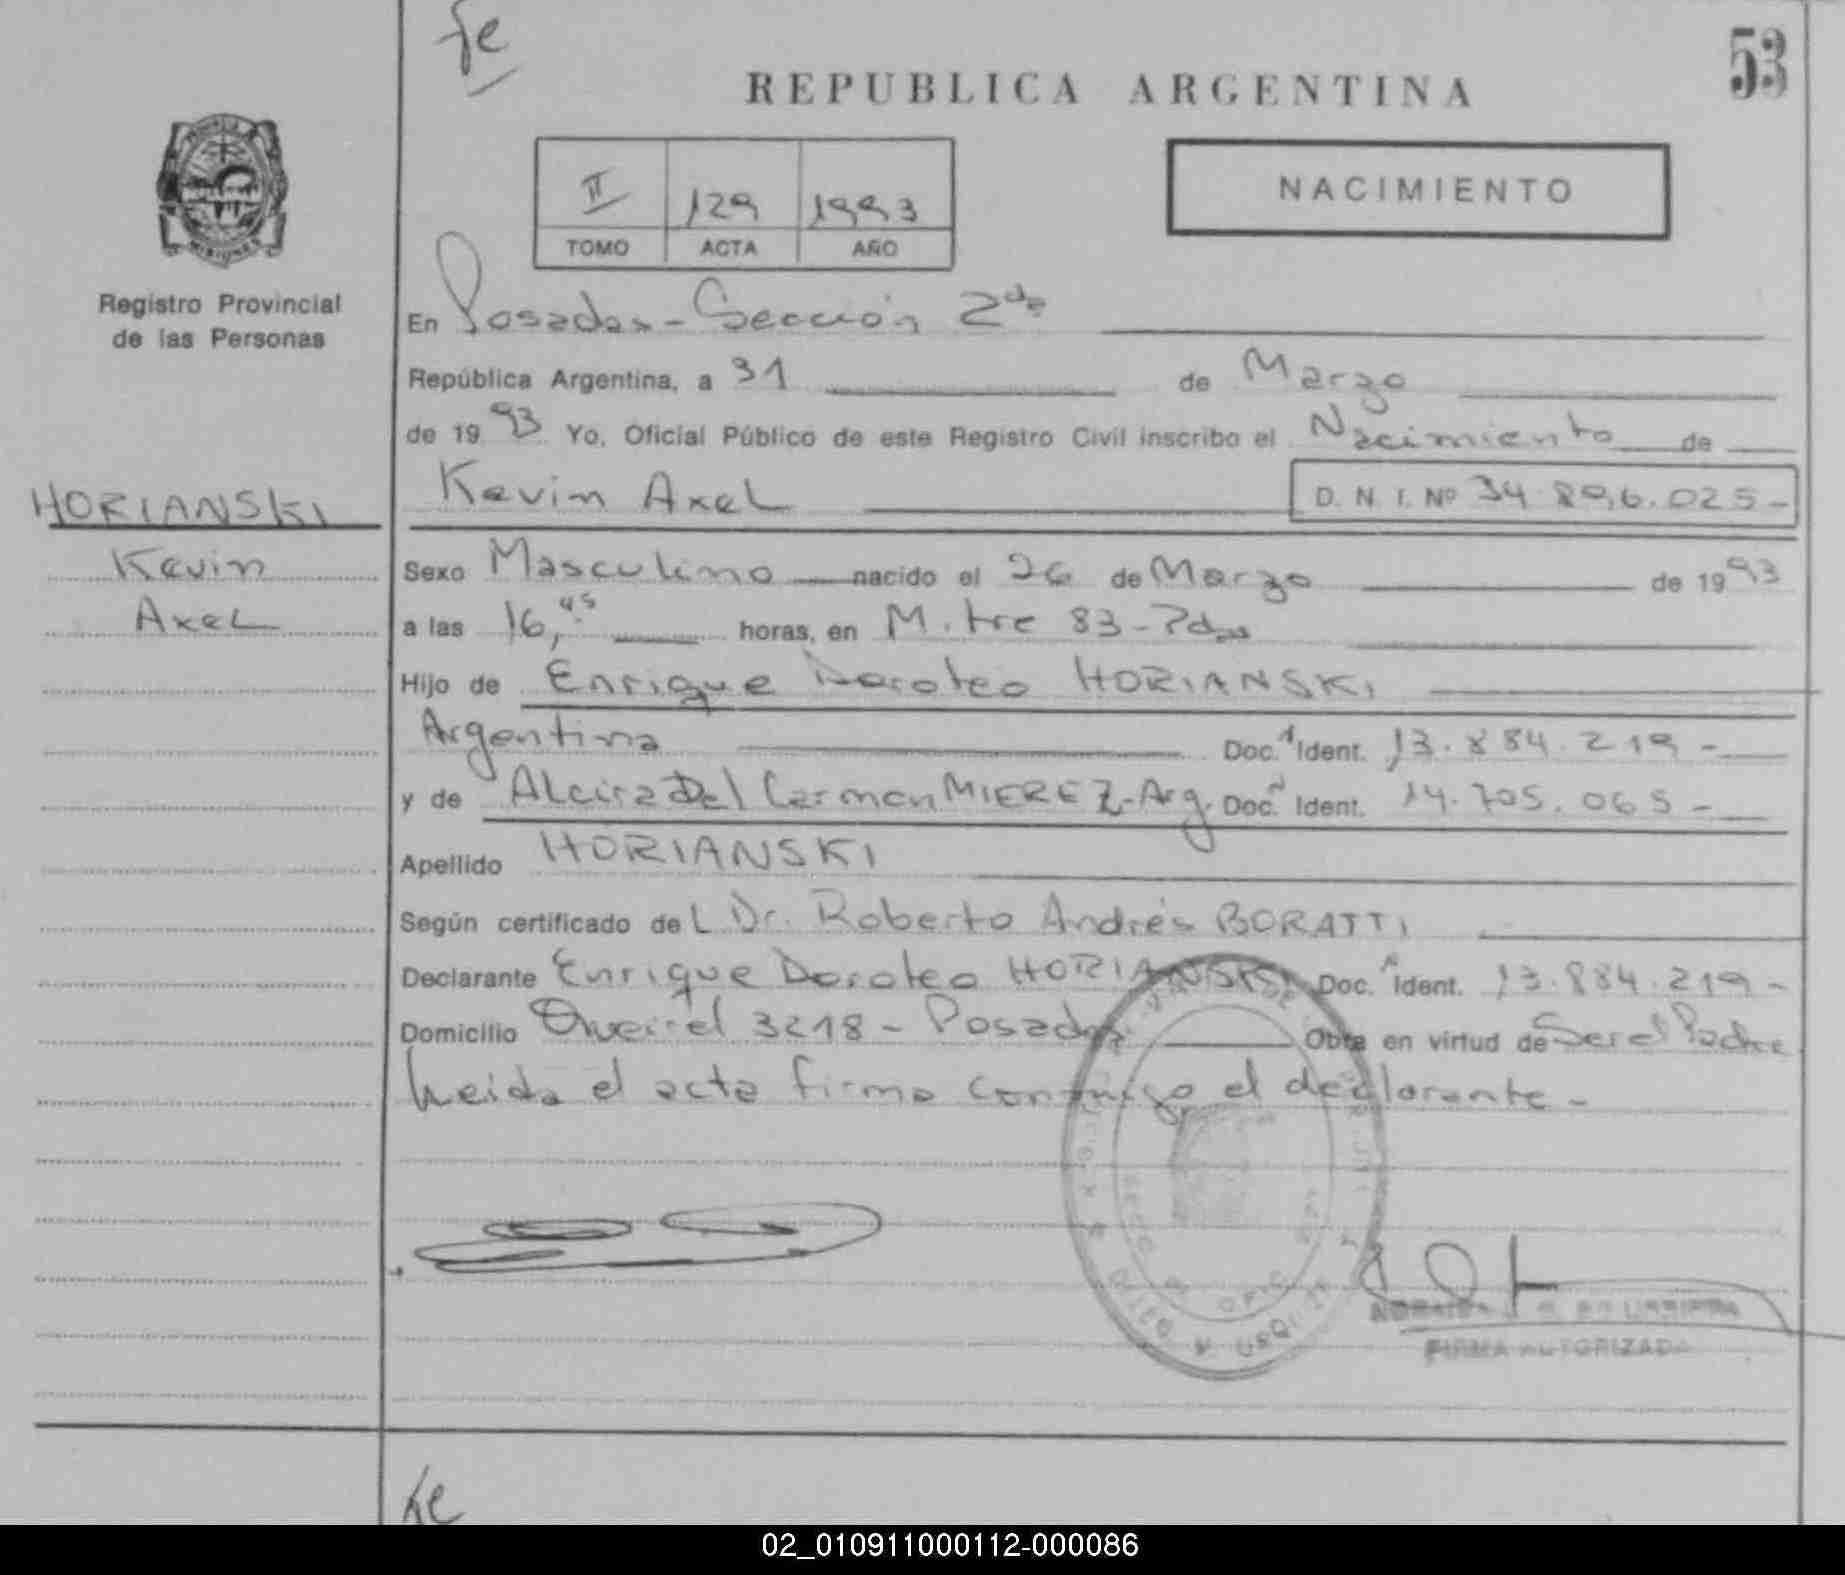 fe
53
REPUBLICA ARGENTINA
II 129 1993
TOMO ACTA AÑO
NACIMIENTO
Registro Provincial
de las Personas
En Posadas - Sección 2da
República Argentina, a 31 de Marzo
de 1993 Yo, Oficial Público de este Registro Civil inscribo el Nacimiento de
HORIANSKI
Kevin Axel D. N. I. Nº 34.896.025-
Kevin
Sexo Masculino nacido el 26 de Marzo de 1993
Axel
a las 16,45 horas, en Mitre 83 - Pdas
Hijo de Enrique Doroteo HORIANSKI
Argentina Doc. Ident. 13.884.219-
y de Alcira Del Carmen MIEREZ - Arg. Doc. Ident. 14.705.065-
Apellido HORIANSKI
Según certificado del Dr. Roberto Andrés BORATTI
Declarante Enrique Doroteo HORIANSKI Doc. Ident. 13.884.219-
Domicilio Queirel 3218 - Posadas Obra en virtud de Ser el Padre
Leida el acta firma conmigo el declarante -
FIRMA AUTORIZADA
fe
02_010911000112-000086